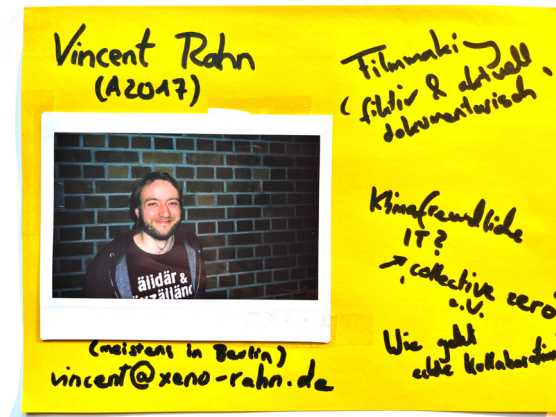 Vincent Rahn
(A2017)
älidär &
(meistens in Berlin)
vincent@xeno-rahn.de
Filmmaking
(fiktiv & aktuell
dokumentarisch)
Klimafreundliche
IT?
↗ collective zero
e.V.
Wie geht
echte Kollaboration